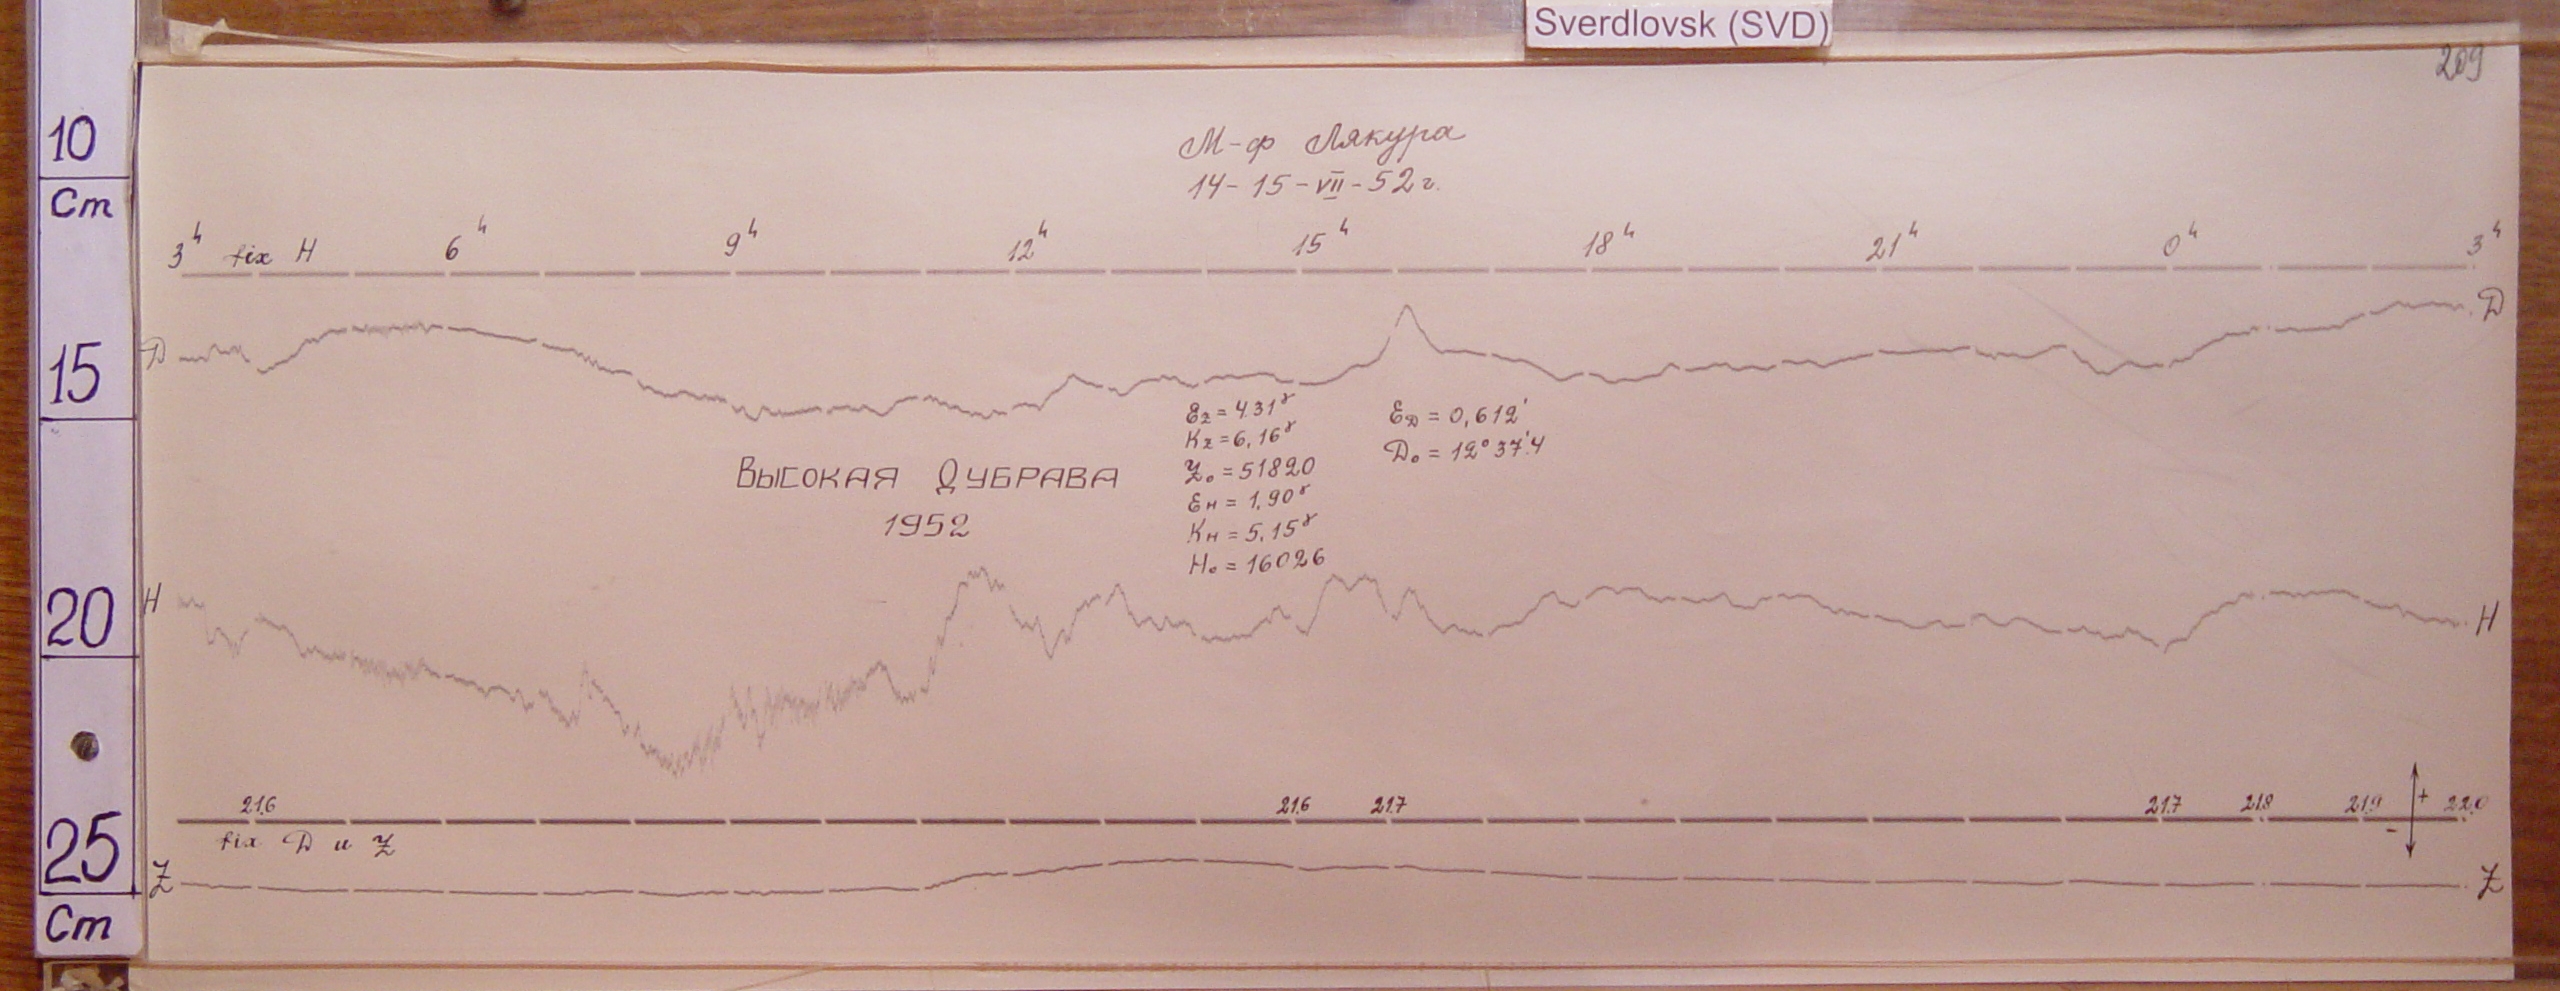 Sverdlovsk (SVD)
209
М-ф Лякура
14-15-VII-52г.
3ч fix H 6ч 9ч 12ч 15ч 18ч 21ч 0ч 3ч
D D
Ez = 4.31γ
Kz = 6,16γ
Z₀ = 51820
Eн = 1,90γ
Kн = 5,15γ
H₀ = 16026
ED = 0,612'
D₀ = 12° 37'.4
ВЫСОКАЯ ДУБРАВА
1952
H H
21.6 21.6 21.7 21.7 21.8 21.9 + 22.0
-
fix D и Z
Z Z
10
Cm
15
20
25
Cm